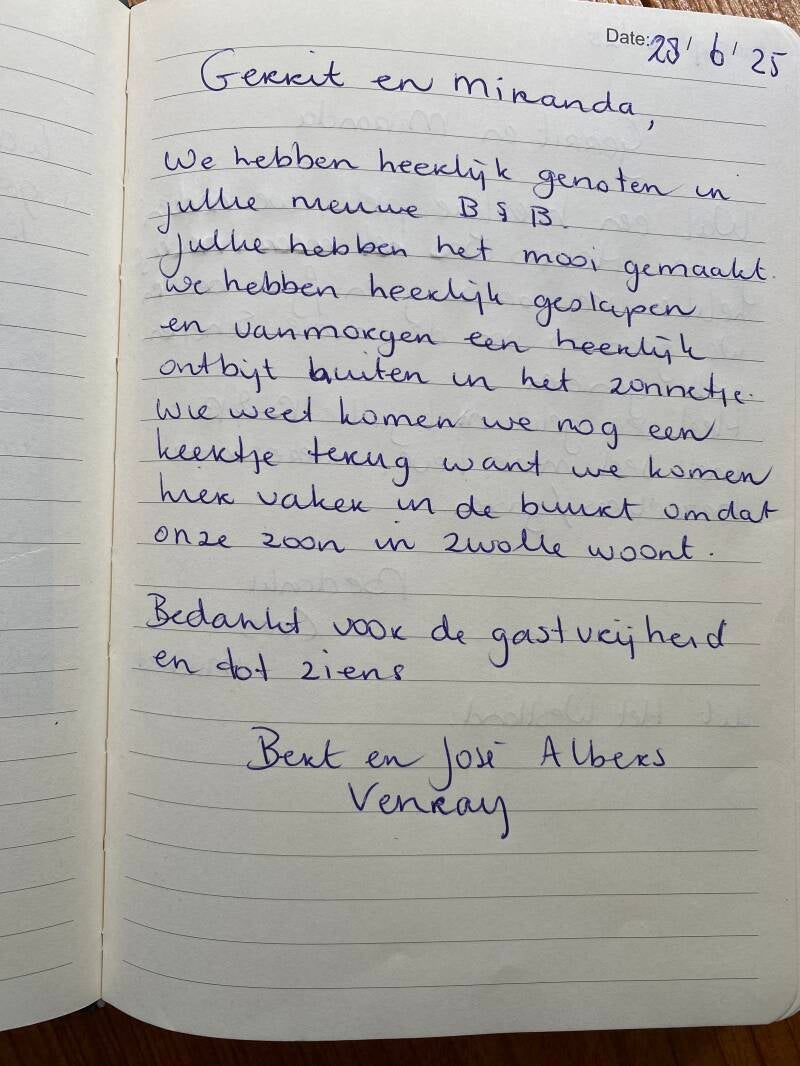 Date: 28/ 6/ 25
Gerrit en Miranda,
We hebben heerlijk genoten in
jullie nieuwe B & B.
Jullie hebben het mooi gemaakt.
We hebben heerlijk geslapen
en vanmorgen een heerlijk
ontbijt buiten in het zonnetje.
Wie weet komen we nog een
keertje terug want we komen
hier vaker in de buurt omdat
onze zoon in Zwolle woont.
Bedankt voor de gastvrijheid
en tot ziens
Bert en José Albers
Venray